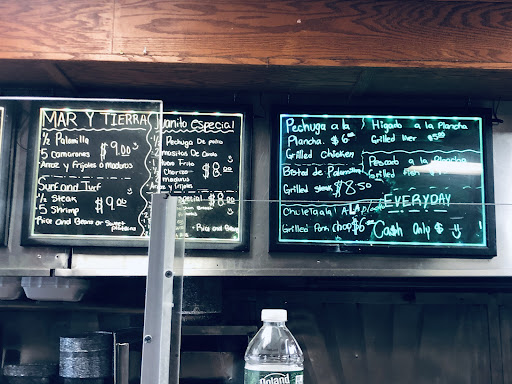 MAR Y TIERRA
½ Palomilla
5 camarones $9.00
Arroz y Frijoles o maduros
Surf and Turf
½ Steak
5 Shrimp $9.00
Rice and Beans or Sweet plantains
Juanito especial
½ Pechuga De pollo
2 masitas De Cerdo
1 Huevo Frito
1 Chorizo $8.00
2 maduros
Arroz y Frijoles
special $8.00
Rice and
Pechuga a la
Plancha. $6.00
Grilled Chicken
Bistec de Palomilla
Grilled steak $8.50
Chuleta a la
Grilled Pork chop $6.00
Higado a la Plancha
Grilled liver $5.00
Pescado a la Plancha
Grilled Fish
EVERYDAY
Cash Only $
Poland